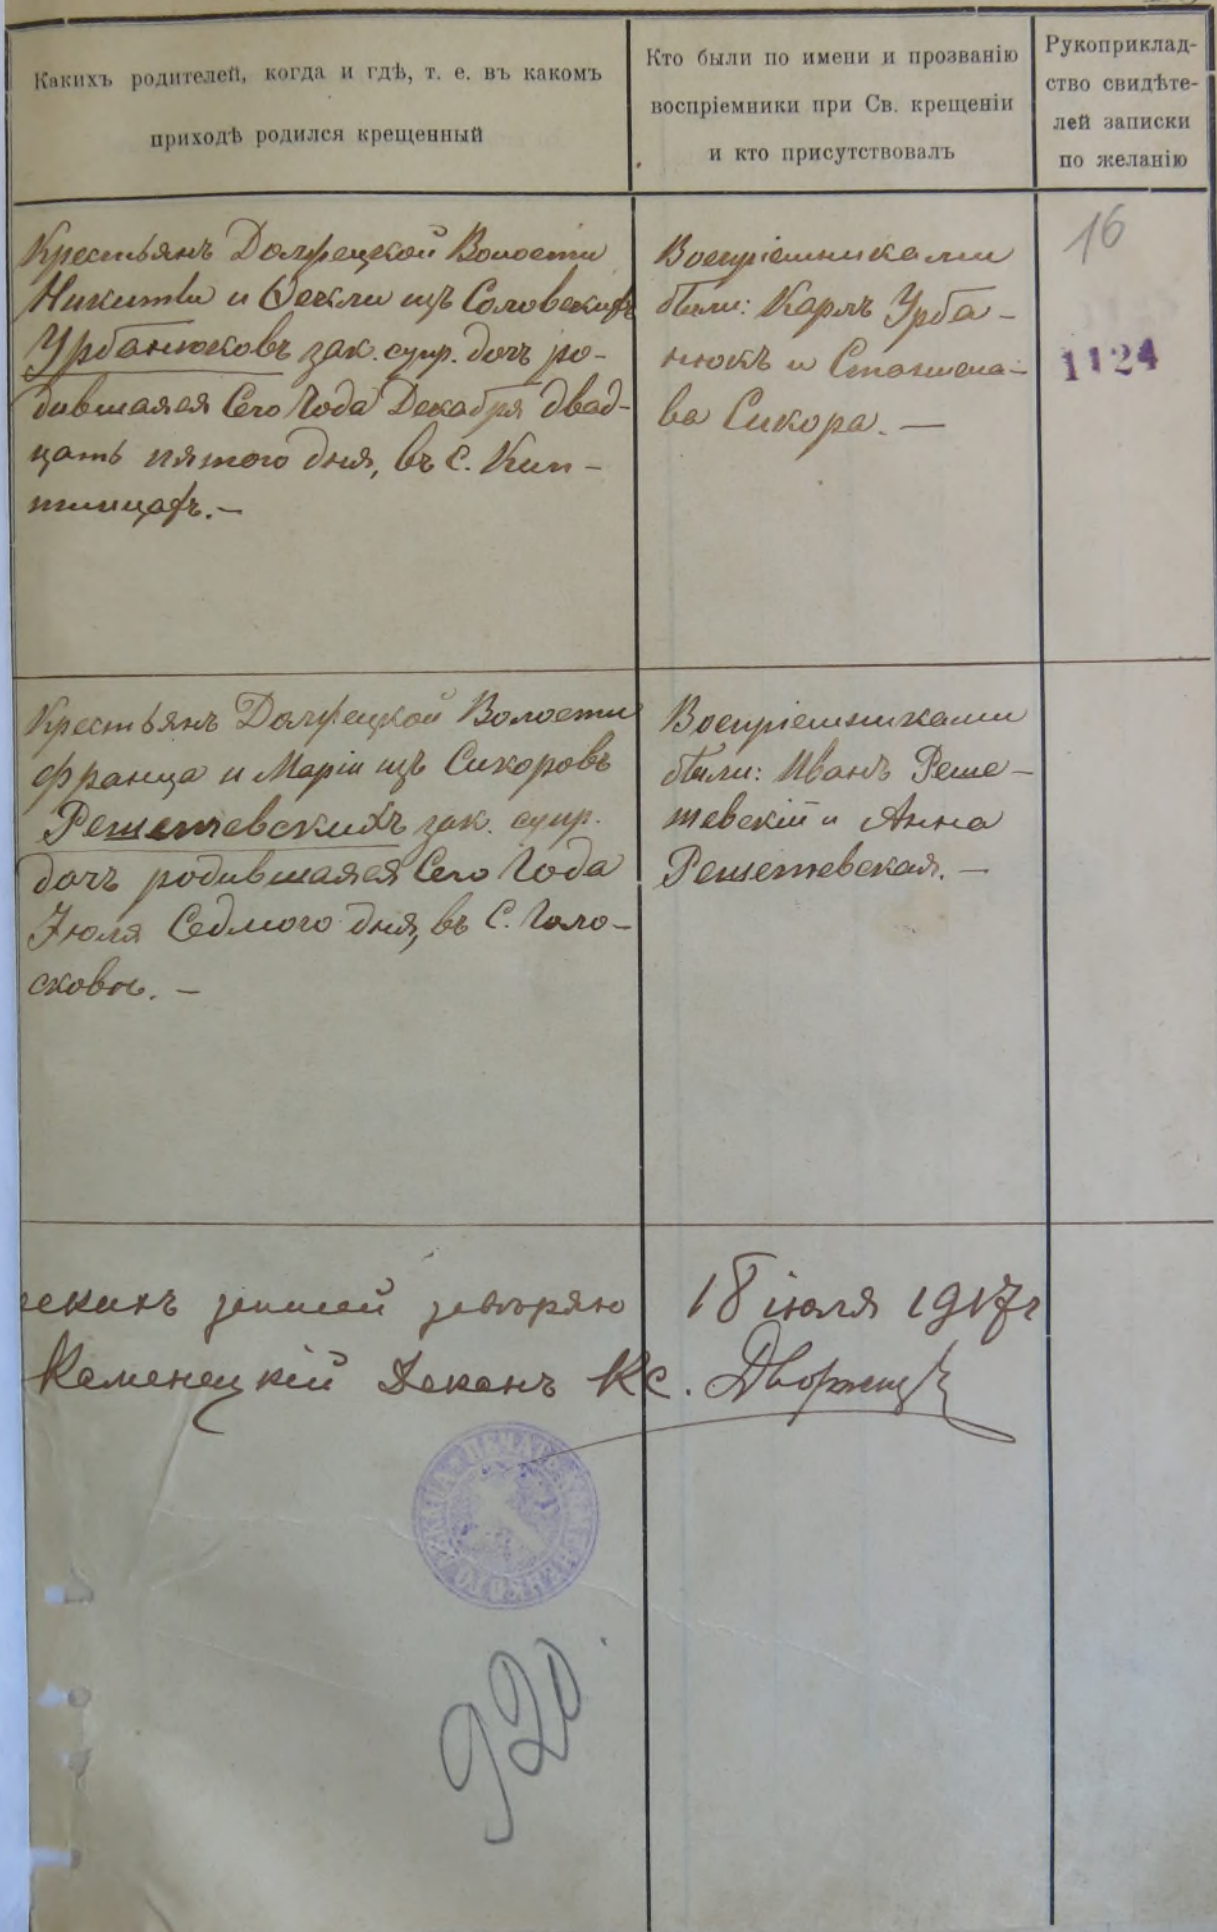 Какихъ родителей, когда и гдѣ, т. е. въ какомъ
приходѣ родился крещенный
Кто были по имени и прозванію
воспріемники при Св. крещеніи
и кто присутствовалъ
Рукоприклад-
ство свидѣте-
лей записки
по желанію
Крестьянъ Должецкой Волости
Никиты и Ѳеклы изъ Соловскихъ
Урбанюковъ зак. супр. дочь ро-
дившаяся Сего Года Декабря двад-
цать пятого дня, въ с. Кип-
тинцахъ.-
Воспріемниками
были: Карлъ Урба-
нюкъ и Станисла-
ва Сикора. -
16
1124
Крестьянъ Должецкой Волости
Франца и Маріи изъ Сикоровъ
Решетевскихъ зак. супр.
дочь родившаяся Сего Года
Іюля Седмого дня, въ с. Голо-
сковѣ. -
Воспріемниками
были: Иванъ Реше-
тевскій и Анна
Решетевская. -
записей завѣряю 18 іюля 1917 г
Каменецкій Деканъ Кс.
920